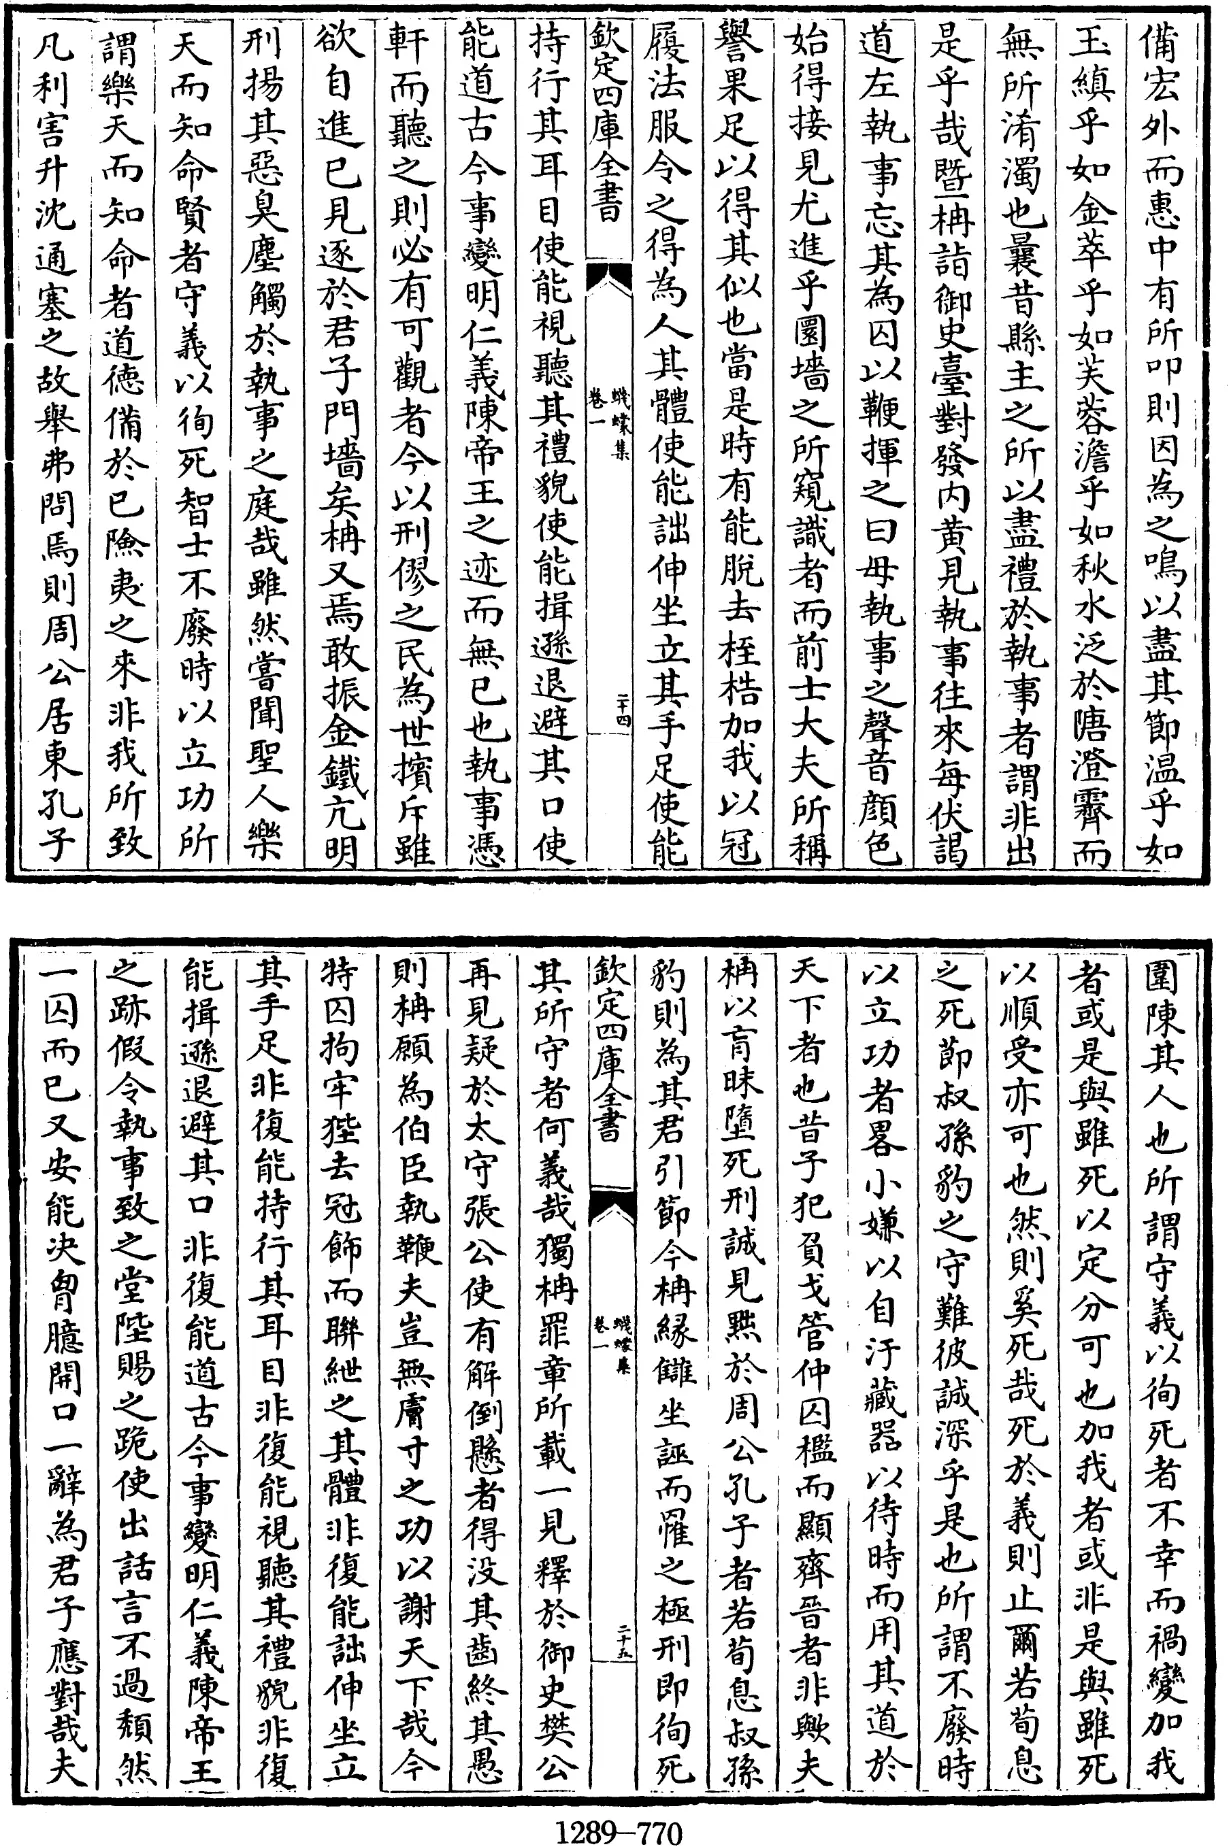 備宏外而惠中有所叩則因為之鳴以盡其節温乎如
玉縝乎如金萃乎如芙蓉澹乎如秋水泛於唐澄霽而
無所淆濁也曩昔縣主之所以盡禮於執事者謂非出
是乎哉暨柟詣御史臺對發内黄見執事往來每伏謁
道左執事忘其為囚以鞭揮之曰毋執事之聲音顔色
始得接見尤進乎圜墻之所窺識者而前士大夫所稱
譽果足以得其似也當是時有能脱去桎梏加我以冠
履法服令之得為人其體使能詘伸坐立其手足使能
欽定四庫全書
蠛蠓集
卷一
二十四
持行其耳目使能視聽其禮貌使能揖遜退避其口使
能道古今事變明仁義陳帝王之迹而無已也執事憑
軒而聽之則必有可觀者今以刑僇之民為世擯斥雖
欲自進已見逐於君子門墻矣柟又焉敢振金鐵亢明
刑揚其惡臭塵觸於執事之庭哉雖然嘗聞聖人樂
天而知命賢者守義以徇死智士不廢時以立功所
謂樂天而知命者道德備於已險夷之來非我所致
凡利害升沈通塞之故舉弗問焉則周公居東孔子
圍陳其人也所謂守義以徇死者不幸而禍變加我
者或是與雖死以定分可也加我者或非是與雖死
以順受亦可也然則奚死哉死於義則止爾若荀息
之死節叔孫豹之守難彼誠深乎是也所謂不廢時
以立功者畧小嫌以自汙藏器以待時而用其道於
天下者也昔子犯負戈管仲囚檻而顯齊晉者非歟夫
柟以肓昧墮死刑誠見㸃於周公孔子者若荀息叔孫
豹則為其君引節今柟縁讎坐誣而罹之極刑即徇死
欽定四庫全書
蠛蠓集
卷一
二十五
其所守者何義哉獨柟罪章所載一見釋於御史樊公
再見疑於太守張公使有解倒懸者得没其齒終其愚
則柟願為伯臣執鞭夫豈無膚寸之功以謝天下哉今
特囚拘牢狴去冠飾而聯紲之其體非復能詘伸坐立
其手足非復能持行其耳目非復能視聽其禮貌非復
能揖遜退避其口非復能道古今事變明仁義陳帝王
之跡假令執事致之堂陛賜之跪使出話言不過頹然
一囚而已又安能决胷臆開口一辭為君子應對哉夫
1289—770